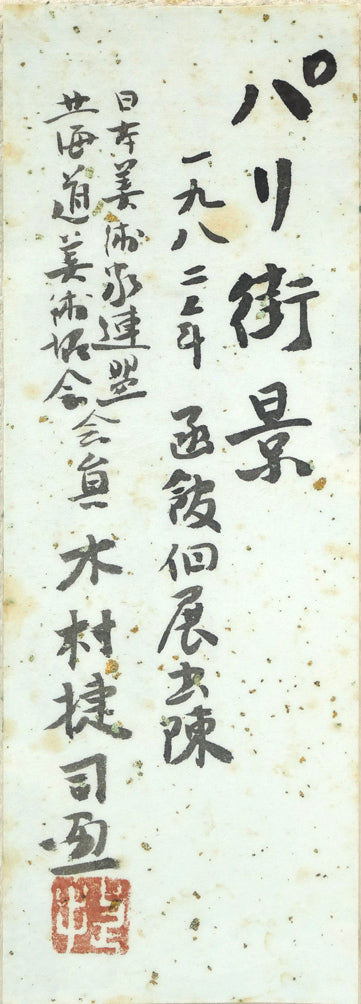 パリ街景
一九八二年 函館個展出陳
日本美術家連盟
北海道美術協会
会員 木村捷司画